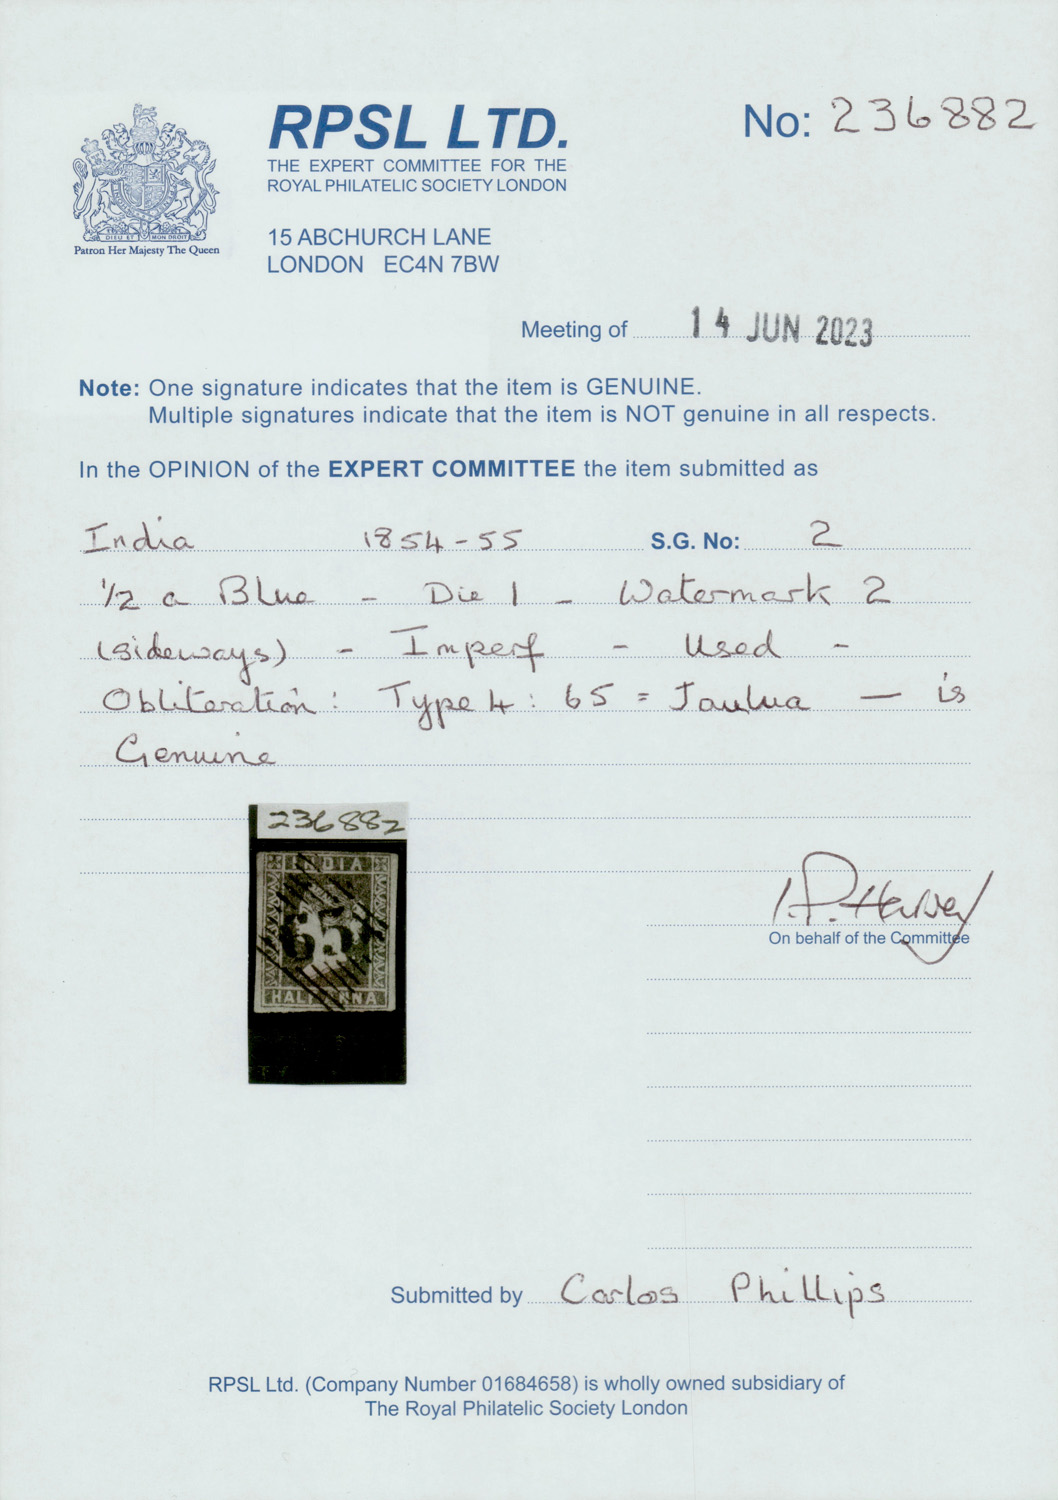 RPSL LTD.
THE EXPERT COMMITTEE FOR THE
ROYAL PHILATELIC SOCIETY LONDON
No: 236882
DIEU ET MON DROIT
Patron Her Majesty The Queen
15 ABCHURCH LANE
LONDON EC4N 7BW
Meeting of 14 JUN 2023
Note: One signature indicates that the item is GENUINE.
Multiple signatures indicate that the item is NOT genuine in all respects.
In the OPINION of the EXPERT COMMITTEE the item submitted as
India 1854-55 S.G. No: 2
1/2 a Blue - Die 1 - Watermark 2
(sideways) - Imperf - Used -
Obliteration: Type 4: 65 = Jaulua — is
Genuine
236882
INDIA
65
HALF ANNA
I.P. Harvey
On behalf of the Committee
Submitted by Carlos Phillips
RPSL Ltd. (Company Number 01684658) is wholly owned subsidiary of
The Royal Philatelic Society London